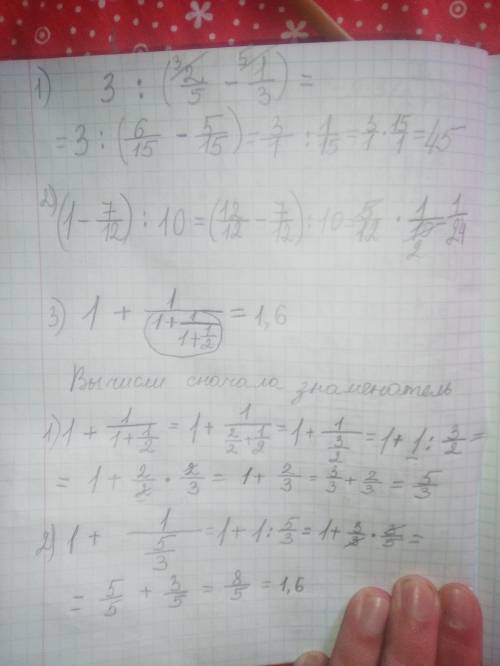 1) 3 : (2/5 - 1/3) =
= 3 : (6/15 - 5/15) = 3/1 : 1/15 = 3/1 · 15/1 = 45
2) (1 - 7/12) : 10 = (12/12 - 7/12) : 10 = 5/12 · 1/10 1/24
3) 1 + 1/(1 + 1/(1 + 1/2)) = 1,6
Вычисли сначала знаменатель
1) 1 + 1/(1 + 1/2) = 1 + 1/(2/2 + 1/2) = 1 + 1/(3/2) = 1 + 1 : 3/2 =
= 1 + 2/2 · 2/3 = 1 + 2/3 = 3/3 + 2/3 = 5/3
2) 1 + 1/(5/3) = 1 + 1 : 5/3 = 1 + 3/3 · 3/5 =
= 5/5 + 3/5 = 8/5 = 1,6